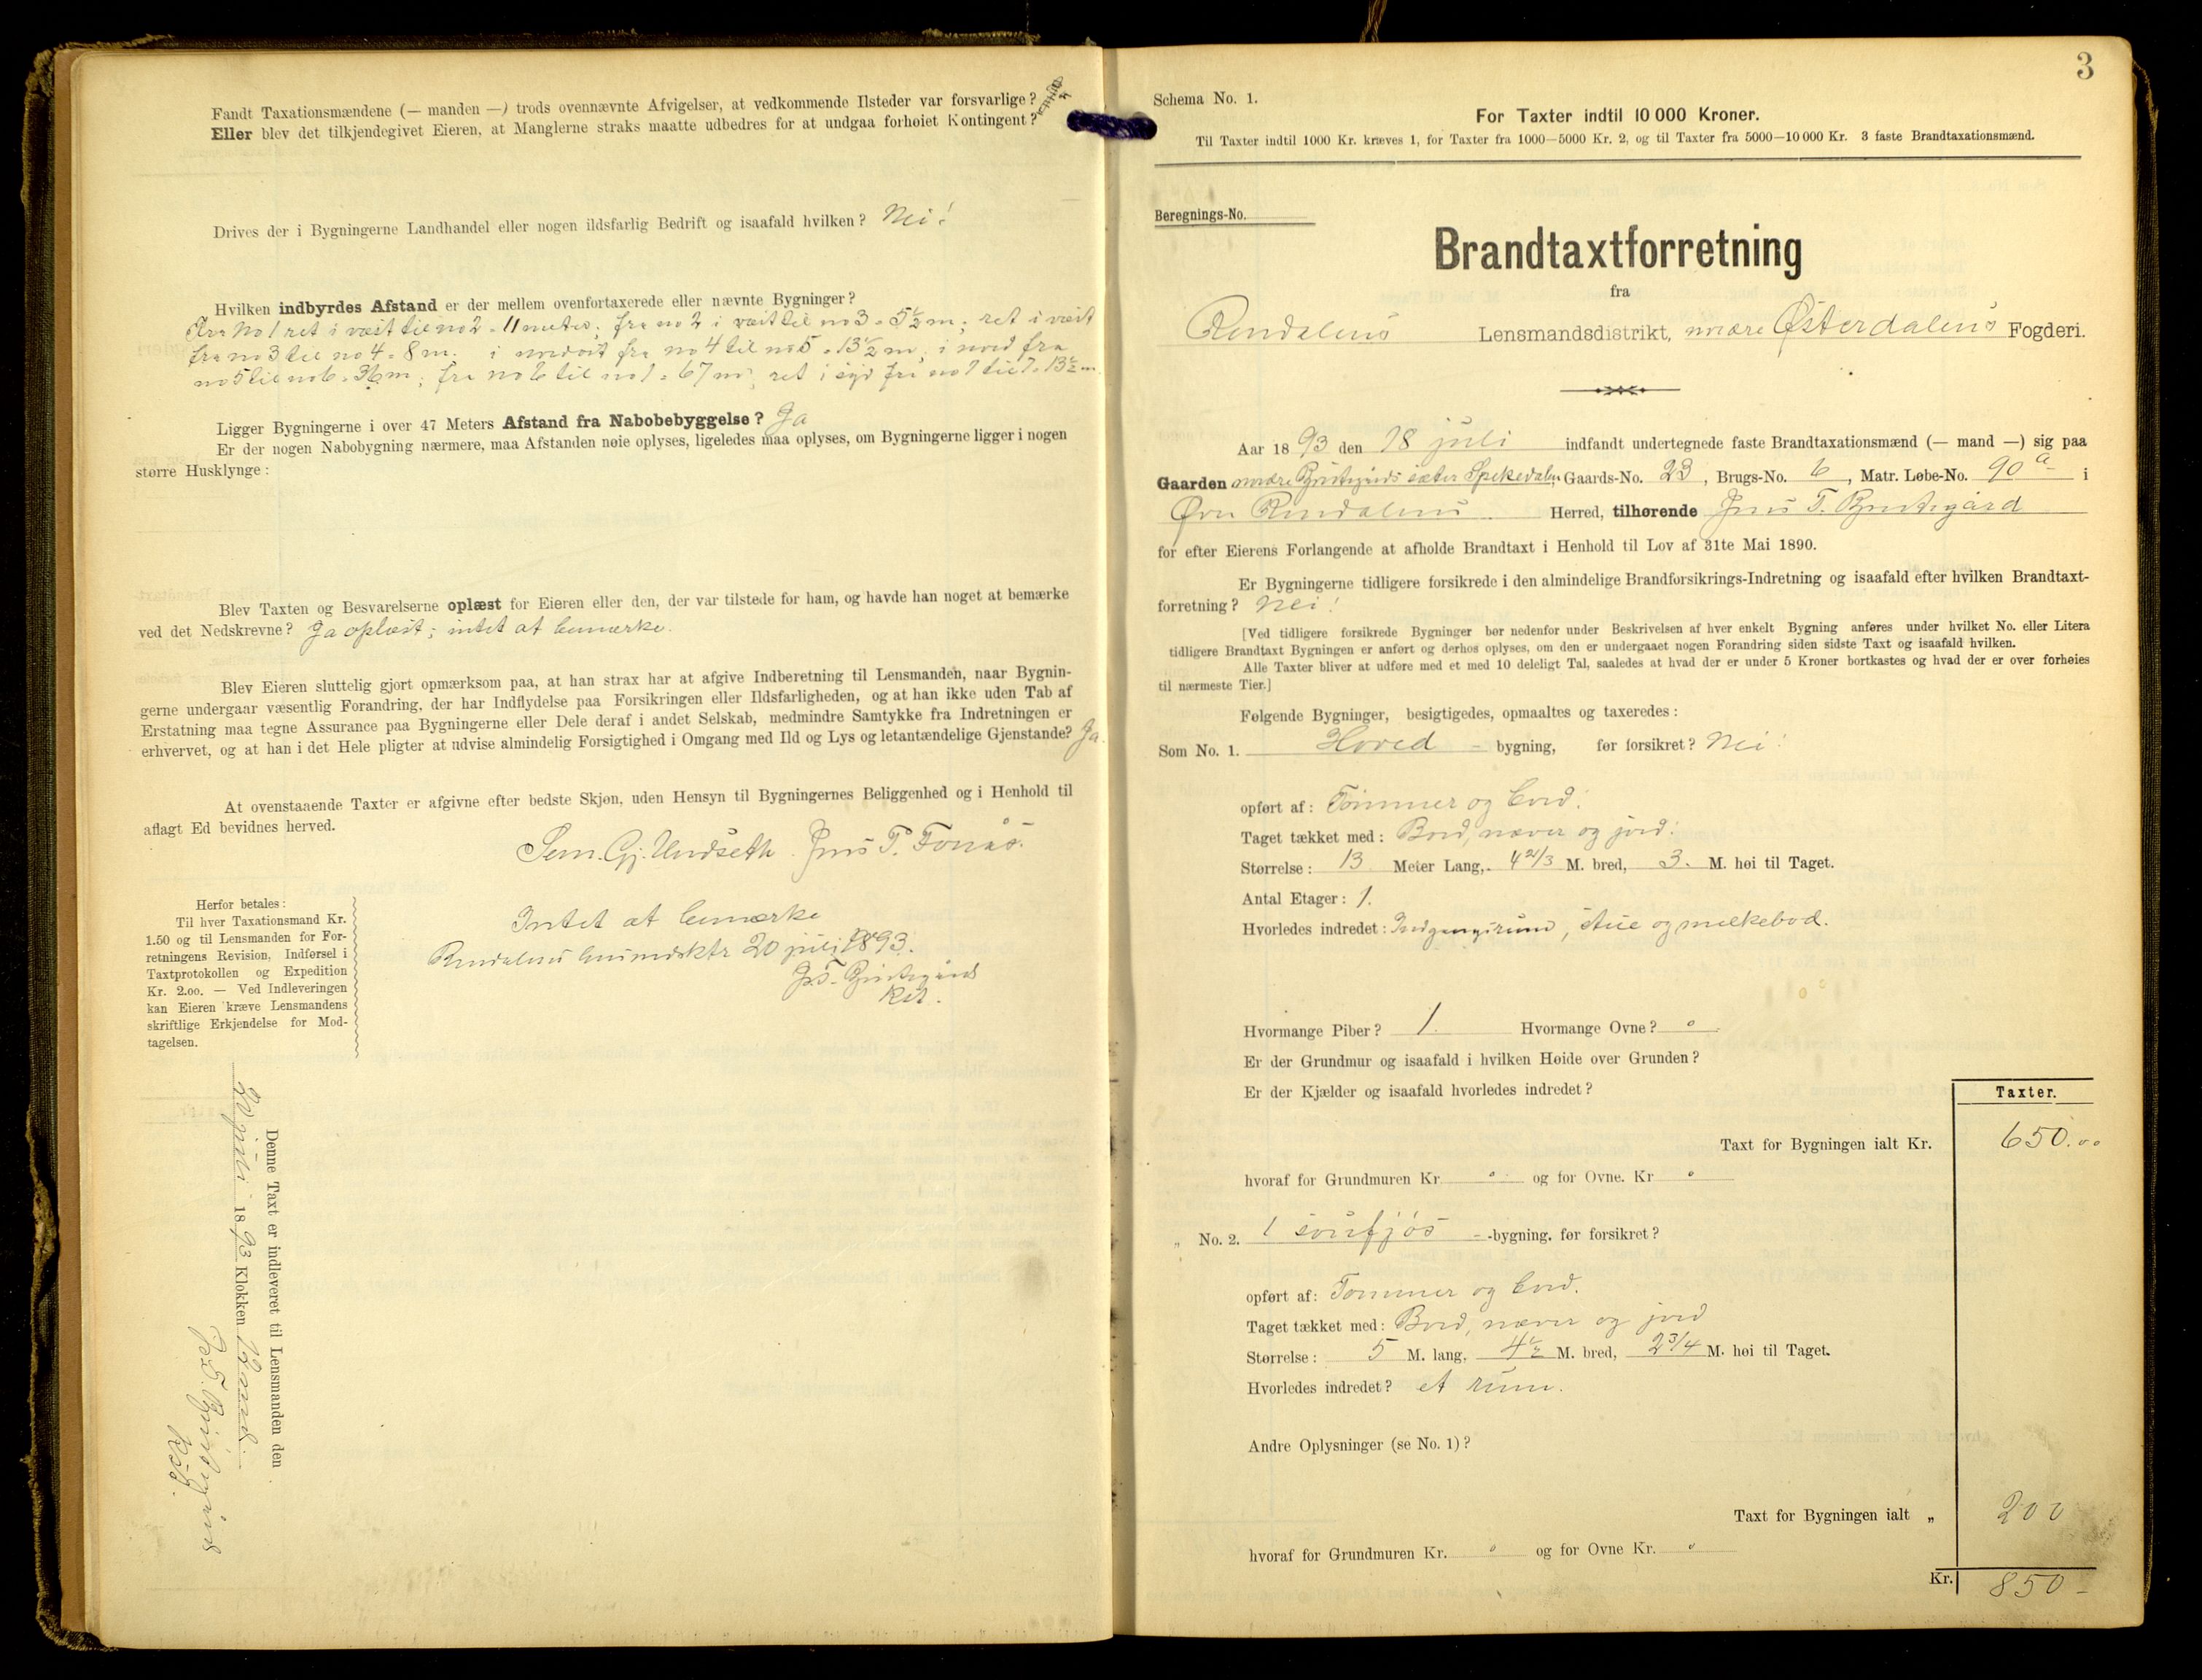 Fandt Taxationsmændene (— manden —) trods ovennævnte Afvigelser, at vedkommende Ilsteder var forsvarlige?
Eller blev det tilkjendegivet Eieren, at Manglerne straks maatte udbedres for at undgaa forhøiet Kontingent?
Drives der i Bygningerne Landhandel eller nogen ildsfarlig Bedrift og isaafald hvilken? Nei!
Hvilken indbyrdes Afstand er der mellem ovenfortaxerede eller nævnte Bygninger?
Fra No 1 ret i væst til no 2 = 11 meter; fra no 2 i væst til no 3 = 5½ m; ret i væst
fra no 3 til no 4 = 8 m. i nordost fra no 4 til no 5 = 13½ m; i nord fra
no 5 til no 6 = 36 m; fra no 6 til no 1 = 67 m; ret i syd fra no 1 til 7 = 13½ m
Ligger Bygningerne i over 47 Meters Afstand fra Nabobebyggelse? Ja
Er der nogen Nabobygning nærmere, maa Afstanden nøie oplyses, ligeledes maa oplyses, om Bygningerne ligger i nogen
større Husklynge:
Blev Taxten og Besvarelserne oplæst for Eieren eller den, der var tilstede for ham, og havde han noget at bemærke
ved det Nedskrevne? Ja oplæst; intet at bemærke.
Blev Eieren sluttelig gjort opmærksom paa, at han strax har at afgive Indberetning til Lensmanden, naar Bygnin-
gerne undergaar væsentlig Forandring, der har Indflydelse paa Forsikringen eller Ildsfarligheden, og at han ikke uden Tab af
Erstatning maa tegne Assurance paa Bygningerne eller Dele deraf i andet Selskab, medmindre Samtykke fra Indretningen er
erhvervet, og at han i det Hele pligter at udvise almindelig Forsigtighed i Omgang med Ild og Lys og letantændelige Gjenstande? Ja.
At ovenstaaende Taxter er afgivne efter bedste Skjøn, uden Hensyn til Bygningernes Beliggenhed og i Henhold til
aflagt Ed bevidnes herved.
Sem. Gj. Undseth. Jens P. Fonås.
Herfor betales:
Til hver Taxationsmand Kr.
1.50 og til Lensmanden for For-
retningens Revision, Indførsel i
Taxtprotokollen og Expedition
Kr. 2.00. — Ved Indleveringen
kan Eieren kræve Lensmandens
skriftlige Erkjendelse for Mod-
tagelsen.
Intet at bemærke
Rendalens 20 juli 1893.
Denne Taxt er indleveret til Lensmanden den
juli 1893 Klokken 12
3
Schema No. 1.
For Taxter indtil 10 000 Kroner.
Til Taxter indtil 1000 Kr. kræves 1, for Taxter fra 1000—5000 Kr. 2, og til Taxter fra 5000—10 000 Kr. 3 faste Brandtaxationsmænd.
Beregnings-No.
Brandtaxtforretning
fra
Rendalens Lensmandsdistrikt, nordre Østerdalens Fogderi.
Aar 1893 den 18 juli indfandt undertegnede faste Brandtaxationsmænd (— mand —) sig paa
Gaarden Spekedalen, Gaards-No. 23, Brugs-No. 6, Matr. Løbe-No. 90 a i
Øvre Rendalens Herred, tilhørende Jens T.
for efter Eierens Forlangende at afholde Brandtaxt i Henhold til Lov af 31te Mai 1890.
Er Bygningerne tidligere forsikrede i den almindelige Brandforsikrings-Indretning og isaafald efter hvilken Brandtaxt-
forretning? Nei!
[Ved tidligere forsikrede Bygninger bør nedenfor under Beskrivelsen af hver enkelt Bygning anføres under hvilket No. eller Litera
tidligere Brandtaxt Bygningen er anført og derhos oplyses, om den er undergaaet nogen Forandring siden sidste Taxt og isaafald hvilken.
Alle Taxter bliver at udføre med et med 10 deleligt Tal, saaledes at hvad der er under 5 Kroner bortkastes og hvad der er over forhøies
til nærmeste Tier.]
Følgende Bygninger, besigtigedes, opmaaltes og taxeredes:
Som No. 1. Hoved - bygning, før forsikret? Nei!
opført af: Tømmer og bord.
Taget tækket med: Bord, næver og jord.
Størrelse: 13 Meter Lang, 4 2/3 M. bred, 3. M. høi til Taget.
Antal Etager: 1.
Hvorledes indredet: Indgangsrum, stue og melkebod.
Hvormange Piber? 1. Hvormange Ovne? o
Er der Grundmur og isaafald i hvilken Høide over Grunden?
Er der Kjælder og isaafald hvorledes indredet?
Taxter.
Taxt for Bygningen ialt Kr. 650.00
hvoraf for Grundmuren Kr o og for Ovne. Kr o
„ No. 2. 1 soufjøs - -bygning. før forsikret?
opført af: Tømmer og bord.
Taget tækket med: Bord, næver og jord
Størrelse: 5 M. lang, 4½ M. bred, 2 3/4 M. høi til Taget.
Hvorledes indredet? et rum.
Andre Oplysninger (se No. 1)?
Taxt for Bygningen ialt „ 200
hvoraf for Grundmuren Kr. o og for Ovne Kr. o
Kr. 850 -